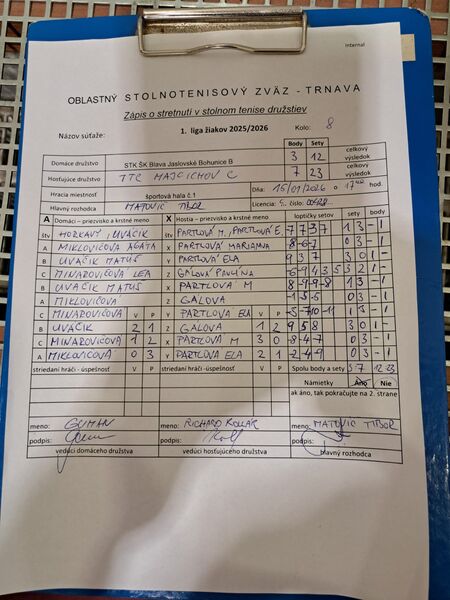 Internal
OBLASTNÝ STOLNOTENISOVÝ ZVÄZ - TRNAVA
Zápis o stretnutí v stolnom tenise družstiev
Názov súťaže: 1. liga žiakov 2025/2026 Kolo: 8
Body Sety
Domáce družstvo STK ŠK Blava Jaslovské Bohunice B 3 12 celkový výsledok
Hosťujúce družstvo TTC MAJCICHOV C 7 23 celkový výsledok
Hracia miestnosť športová hala č.1 Dňa: 15/01/2026 o hod.
Hlavný rozhodca MATOVIČ TIBOR Licencia: číslo:
A Domáci - priezvisko a krstné meno X Hostia - priezvisko a krstné meno loptičky setov sety body
štv HORKAVÝ, UVÁČIK štv PARTLOVÁ M, PARTLOVÁ E. 7 7 -3 7 1 3 - 1
A MIKLOVIČOVÁ AGÁTA X PARTLOVÁ MARIANNA -8 -6 -7 0 3 - 1
B UVÁČIK MATÚŠ Y PARTLOVÁ ELA 9 3 7 3 0 1 -
C MINAROVIČOVÁ LEA Z GÁLOVÁ PAVLÍNA -6 -9 4 3 5 3 2 1 -
B UVÁČIK MATÚŠ X PARTLOVÁ M 8 -9 -9 -8 1 3 - 1
A MIKLOVIČOVÁ Z GÁLOVÁ -1 -5 -5 0 3 - 1
C MINAROVIČOVÁ V P Y PARTLOVÁ ELA V P -5 -7 10 -11 1 3 - 1
B UVÁČIK 2 1 Z GÁLOVÁ 1 2 9 5 8 3 0 1 -
C MINAROVIČOVÁ 1 2 X PARTLOVÁ M 3 0 -8 -4 -7 0 3 - 1
A MIKLOVIČOVÁ 0 3 Y PARTLOVÁ ELA 2 1 -2 -4 -9 0 3 - 1
striedaní hráči - úspešnosť V P striedaní hráči - úspešnosť V P Spolu body a sety 3:7 12:23
Námietky Áno Nie
ak áno, tak pokračujte na 2. strane
meno: GUMAN meno: RICHARD KOLLÁR meno: MATOVIČ TIBOR
podpis: podpis: podpis:
vedúci domáceho družstva vedúci hosťujúceho družstva hlavný rozhodca